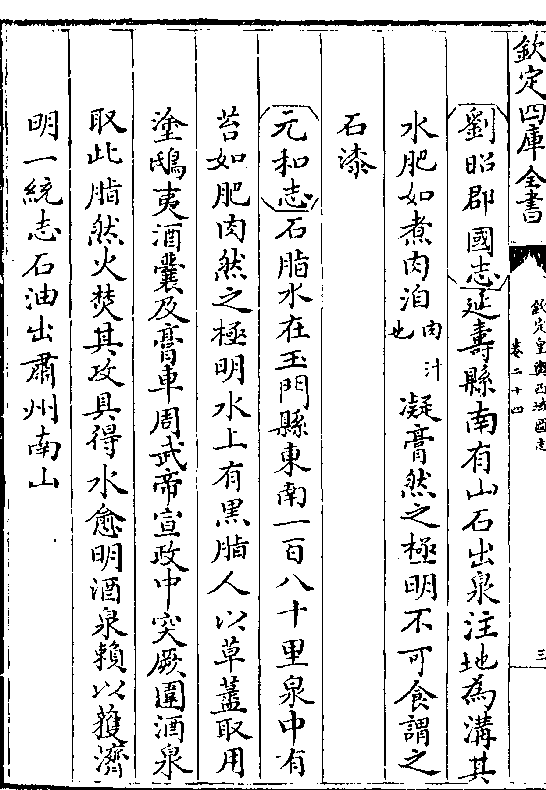 欽定四庫全書
欽定皇輿西域圖志
卷二十四
三
劉昭郡國志延壽縣南有山石出泉注地為溝其
水肥如煮肉洎肉汁也凝膏然之極明不可食謂之
石漆
元和志石脂水在玉門縣東南一百八十里泉中有
苔如肥肉然之極明水上有黑脂人以草蓋取用
塗鴟夷酒囊及膏車周武帝宣政中突厥圍酒泉
取此脂然火焚其攻具得水愈明酒泉賴以獲濟
明一統志石油出肅州南山